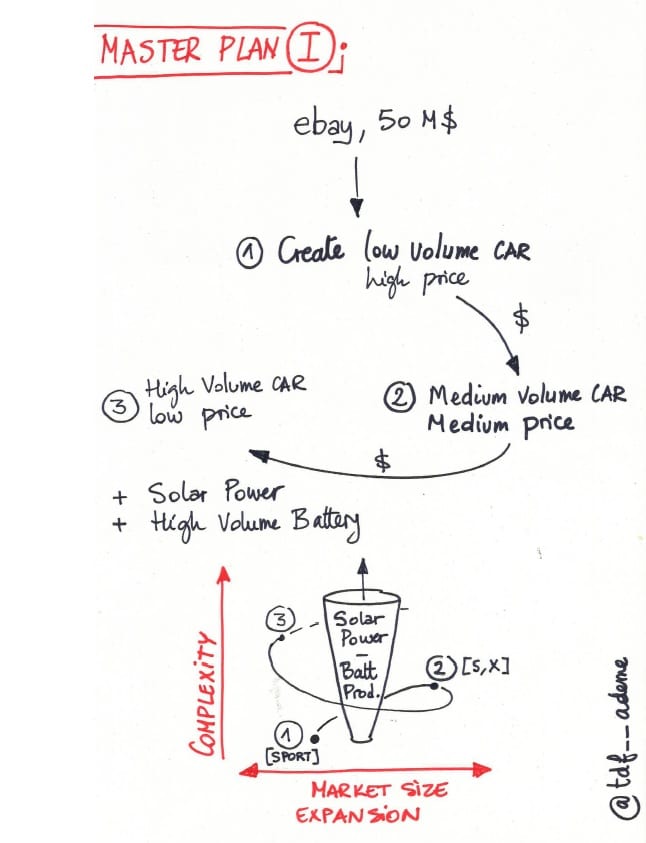 MASTER PLAN I;
ebay, 50 M$
1 Create low volume CAR
high price
$
3 High Volume CAR
low price
2 Medium volume CAR
Medium price
$
+ Solar Power
+ High Volume Battery
COMPLEXITY
3
Solar
Power
-
Batt
Prod.
2 [S,X]
1
[SPORT]
MARKET SIZE
EXPANSION
@tdf__ademe